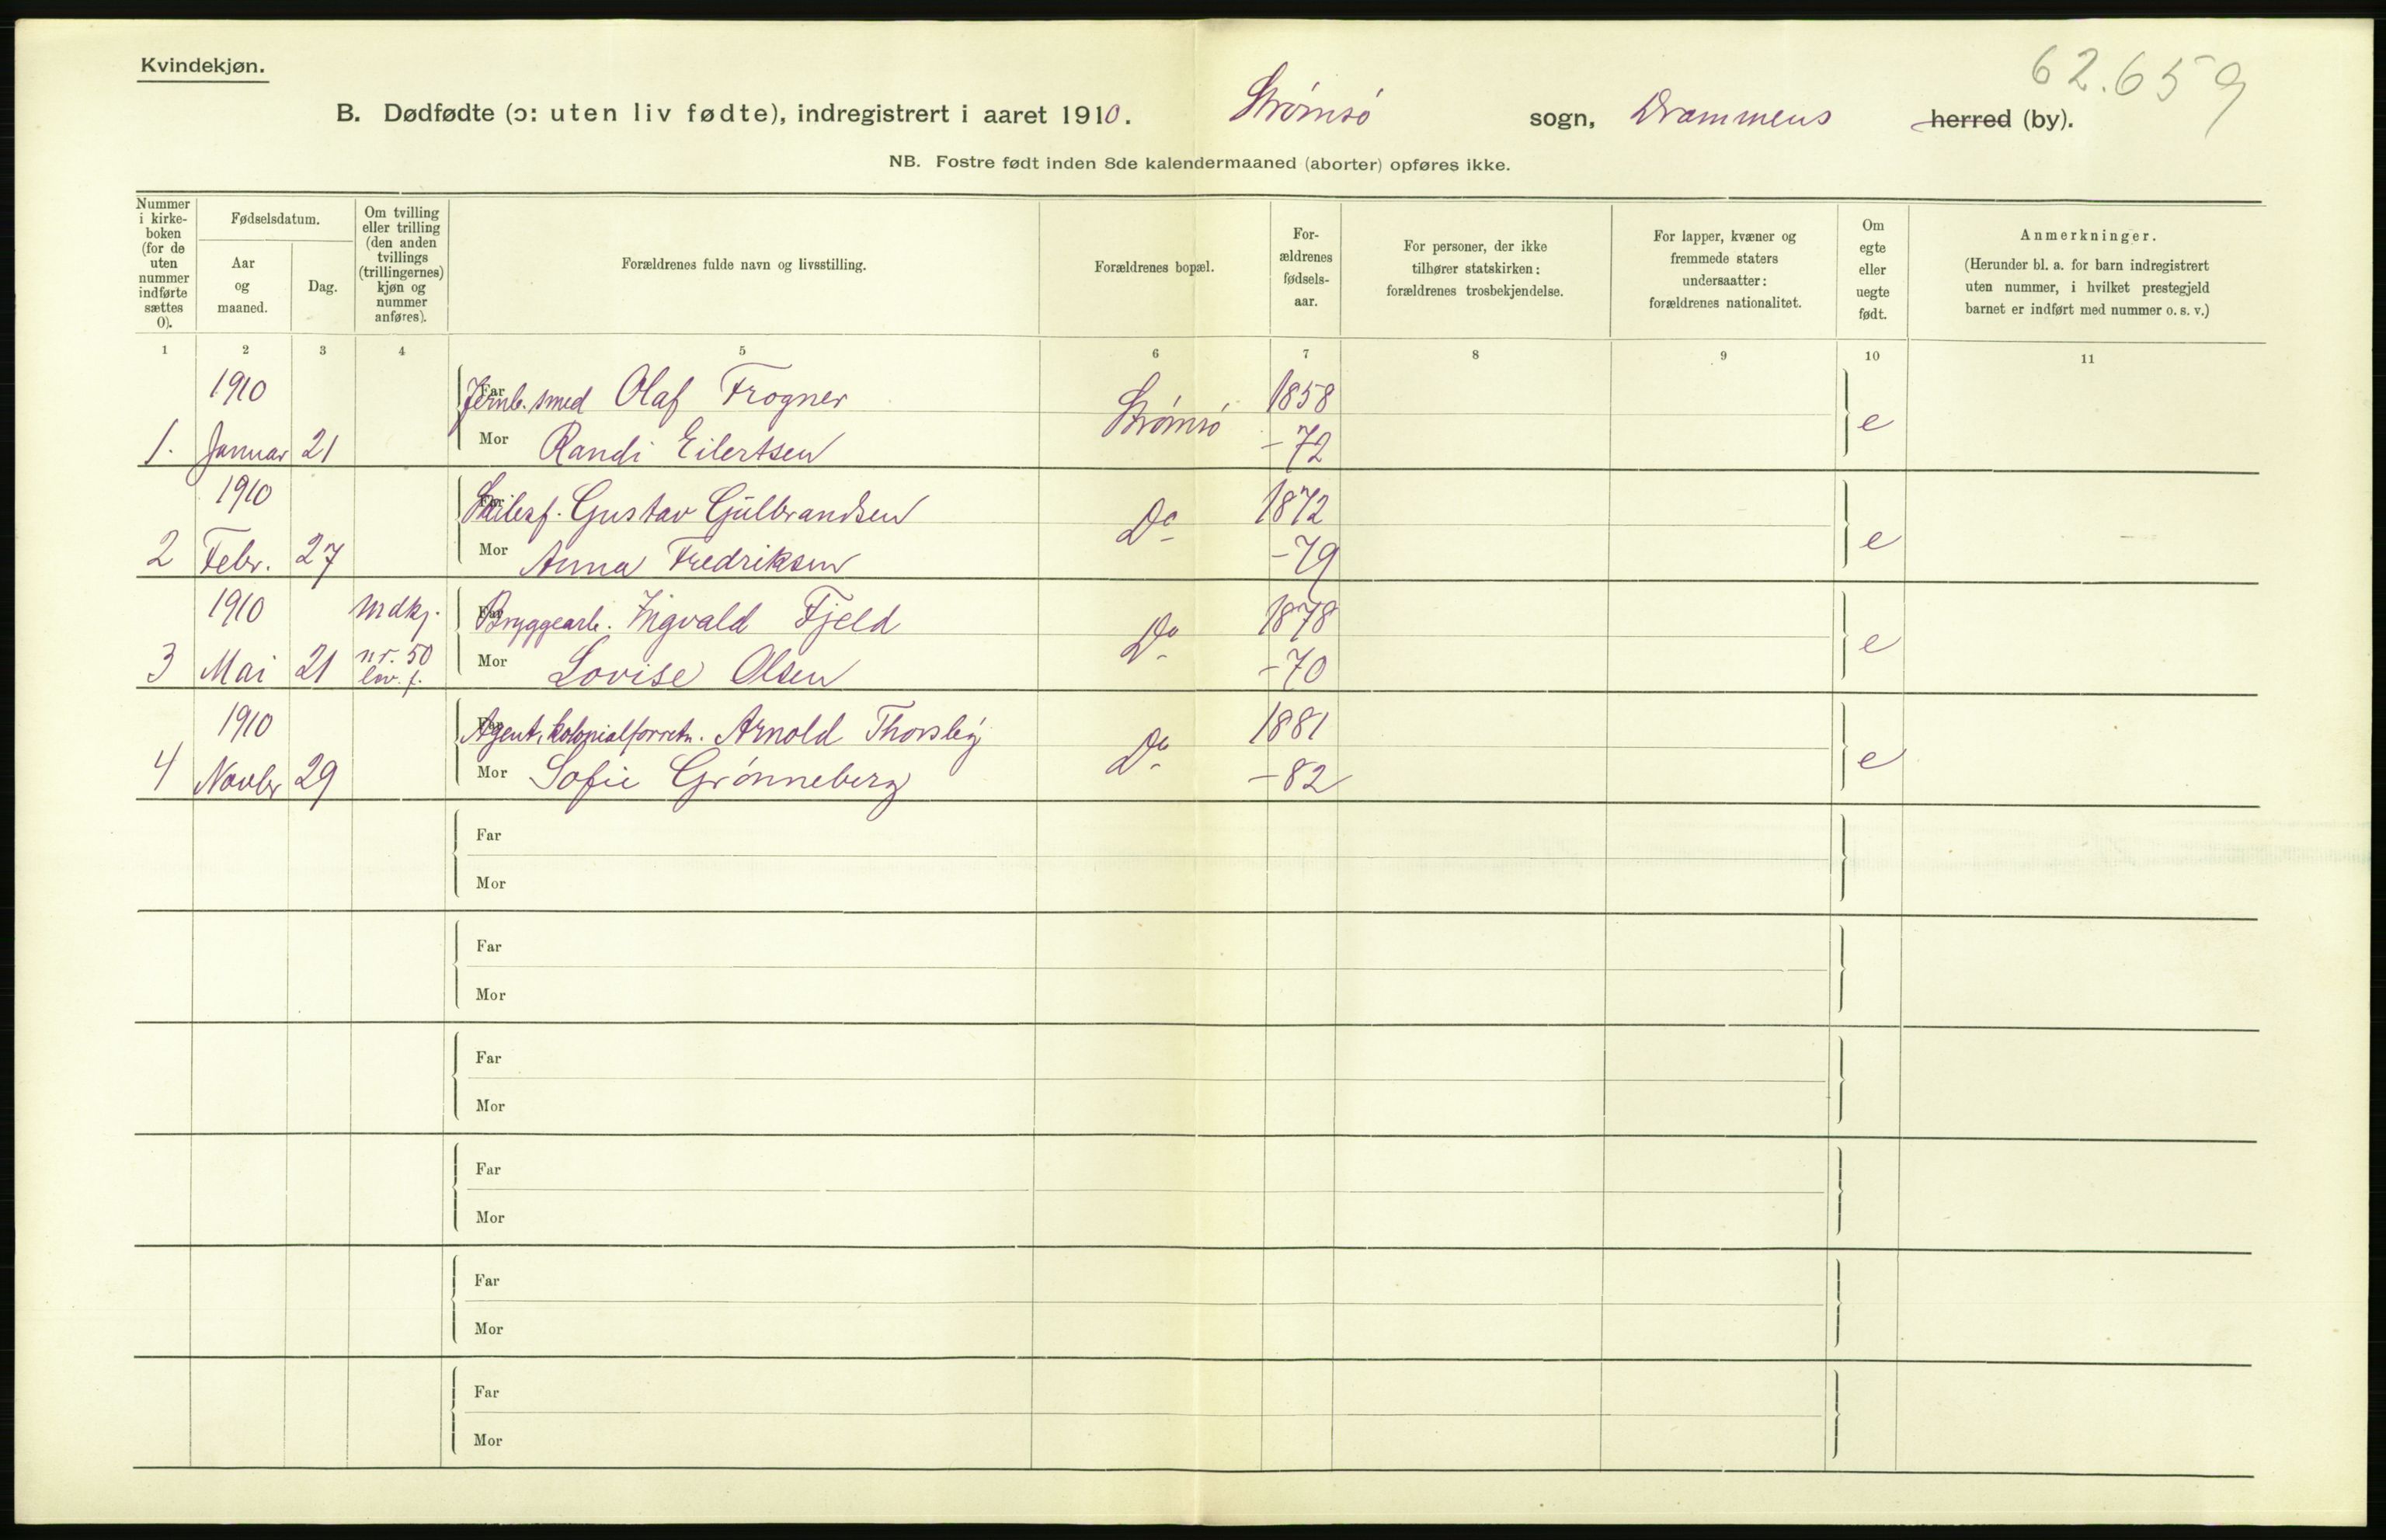 Kvindekjøn.
62.659
B. Dødfødte (ɔ: uten liv fødte), indregistrert i aaret 1910. Strømsø sogn, Drammens herred (by).
NB. Fostre født inden 8de kalendermaaned (aborter) opføres ikke.
Nummer i kirke- boken (for de uten nummer indførte sættes 0).
Fødselsdatum.
Aar og maaned.
Dag.
Om tvilling eller trilling (den anden tvillings (trillingernes) kjøn og nummer anføres).
Forældrenes fulde navn og livsstilling.
Forældrenes bopæl.
For- ældrenes fødsels- aar.
For personer, der ikke tilhører statskirken: forældrenes trosbekjendelse.
For lapper, kvæner og fremmede staters undersaatter: forældrenes nationalitet.
Om egte eller uegte født.
Anmerkninger. (Herunder bl. a. for barn indregistrert uten nummer, i hvilket prestegjeld barnet er indført med nummer o. s. v.)
1 2 3 4 5 6 7 8 9 10 11
1910 Far Jernb. smed Olaf Frogner Strømsø 1858 e
1. Januar 21 Mor Randi Eilertsen -72
1910 Far Gustav Gulbrandsen Do 1872 e
2 Febr. 27 Mor Anna Fredriksen -79
1910 Mdkj. Far Bryggearb. Ingvald Fjeld Do 1878 e
3 Mai 21 nr. 50 lev. f. Mor Lovise Olsen -70
1910 Far Agent, kolonialforretn. Arnold Thorsby Do 1881 e
4 Novbr 29 Mor Sofie Grønneberg -82
Far
Mor
Far
Mor
Far
Mor
Far
Mor
Far
Mor
Far
Mor